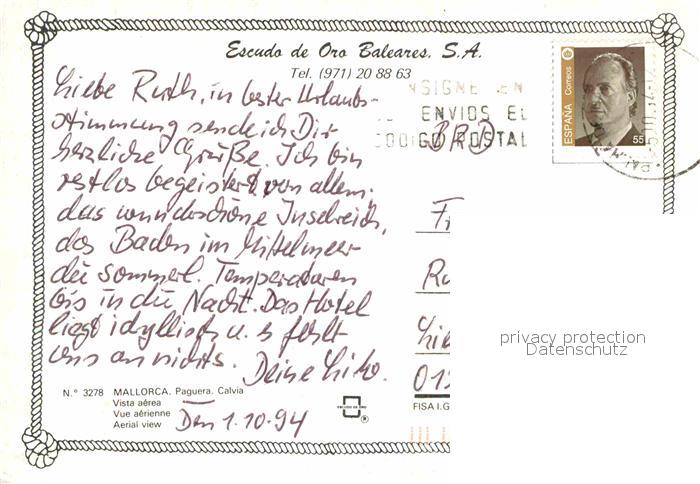 Escudo de Oro Baleares, S.A.
Tel. (971) 20 88 63
NSIGNE EN
ENVIOS EL
CODIGO POSTAL
ESPAÑA Correos
55
BRD
Liebe Ruth, in bester Urlaubs-
stimmung sende ich Dir
herzliche Grüße. Ich bin
restlos begeistert von allem:
das wunderschöne Inselreich,
das Baden im Mittelmeer
die sommerl. Temperaturen
bis in die Nacht. Das Hotel
liegt idyllisch u. es fehlt
uns an nichts.
Deine
Den 1.10.94
N.° 3278 MALLORCA. Paguera. Calvia
Vista aérea
Vue aérienne
Aerial view
ESCUDO DE ORO
®
FISA I.G
privacy protection
Datenschutz